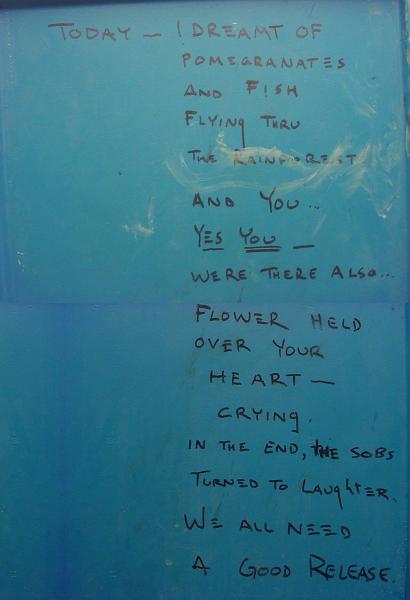 TODAY — I DREAMT OF
POMEGRANATES
AND FISH
FLYING THRU
THE RAINFOREST
AND YOU...
YES YOU —
WERE THERE ALSO...
FLOWER HELD
OVER YOUR
HEART —
CRYING.
IN THE END, THE SOBS
TURNED TO LAUGHTER.
WE ALL NEED
A GOOD RELEASE.